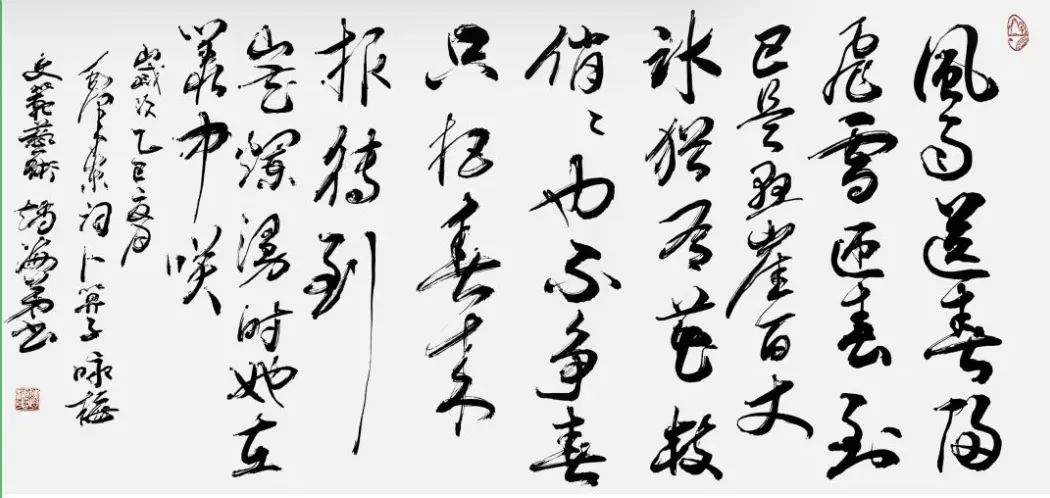 風雨送春歸
飛雪迎春到
已是懸崖百丈
冰猶有花枝
俏〻也不争春
只把春来
报待到
山花爛漫時她在
叢中咲
歲次乙巳夏月
毛澤东詞卜算子咏梅
藝術書